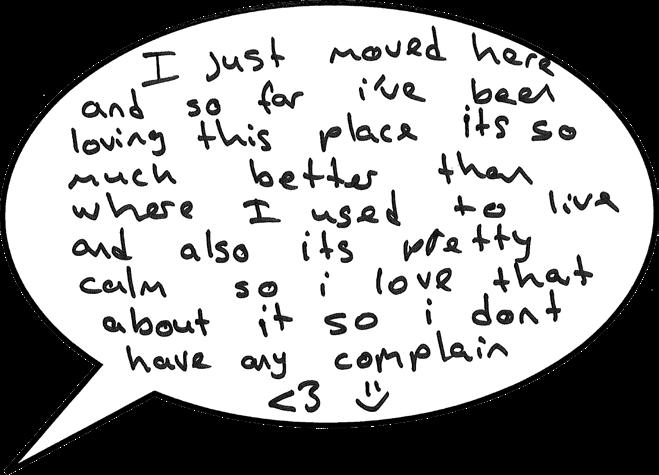 I just moved here
and so far i've been
loving this place its so
much better than
where I used to live
and also its pretty
calm so i love that
about it so i dont
have any complain
<3 :)